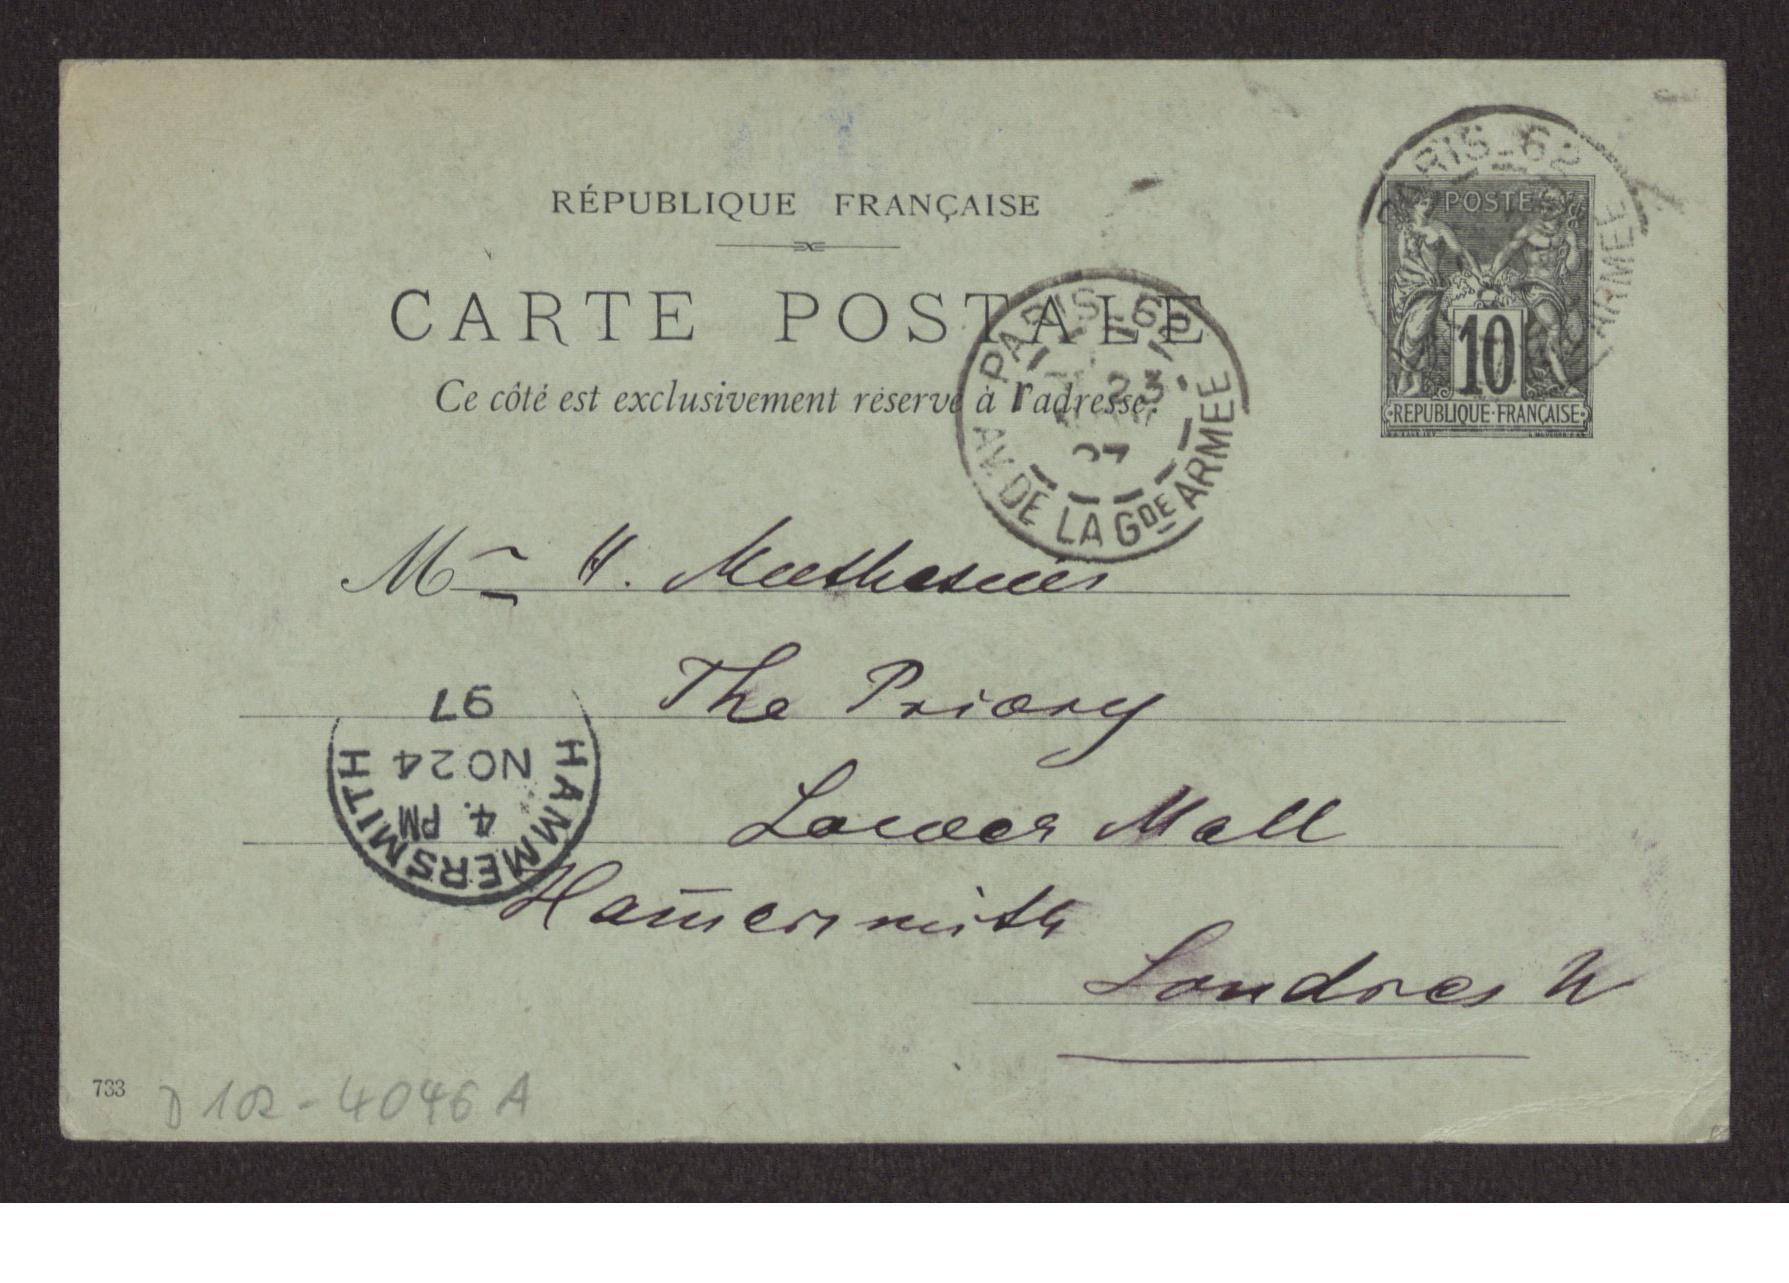 RÉPUBLIQUE FRANÇAISE
CARTE POSTALE
Ce côté est exclusivement réservé à l'adresse.
PARIS-62
L'ARMEE
POSTES
10
REPUBLIQUE·FRANÇAISE
PARIS-62
23
97
AV. DE LA Gde ARMEE
Mr H. Muthesius
The Priory
Lower Mall
Ham̄ersmith
Londres W
HAMMERSMITH
4. PM
NO 24
97
733
D 102-4046 A